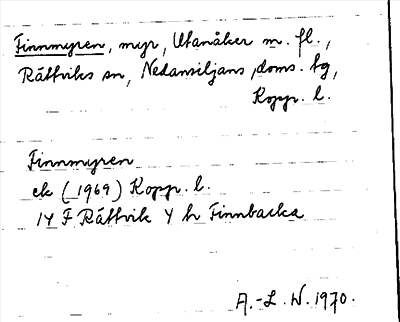 Finnmyren, myr, Utanåker m. fl.,
Rättviks sn, Nedansiljans doms. tg,
Kopp. l.
Finnmyren
ek (1969) Kopp. l.
14 F Rättvik 4 h Finnbacka
A.-L. W. 1970.